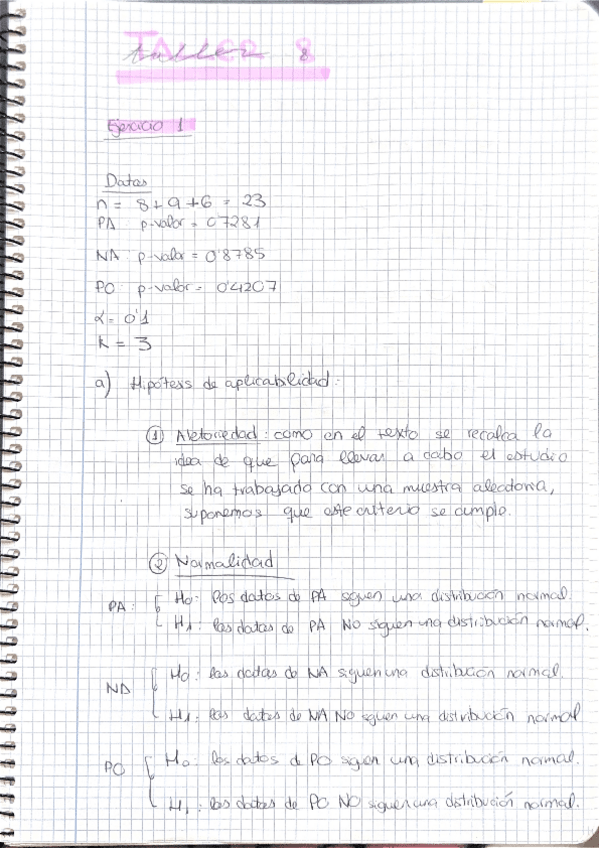 Taller 8
Ejercicio 1
Datos
n = 8+9+6 = 23
PA: p-valor = 0'7281
NA: p-valor = 0'8785
PO: p-valor = 0'4207
α = 0'1
k = 3
a) Hipótesis de aplicabilidad:
① Aletoriedad: como en el texto se recalca la
idea de que para llevar a cabo el estudio
se ha trabajado con una muestra aleatoria,
suponemos que este criterio se cumple.
② Normalidad
PA: { H₀: los datos de PA siguen una distribución normal.
H₁: los datos de PA NO siguen una distribución normal.
NA { H₀: los datos de NA siguen una distribución normal.
H₁: los datos de NA NO siguen una distribución normal
PO { H₀: los datos de PO siguen una distribución normal.
H₁: los datos de PO NO siguen una distribución normal.